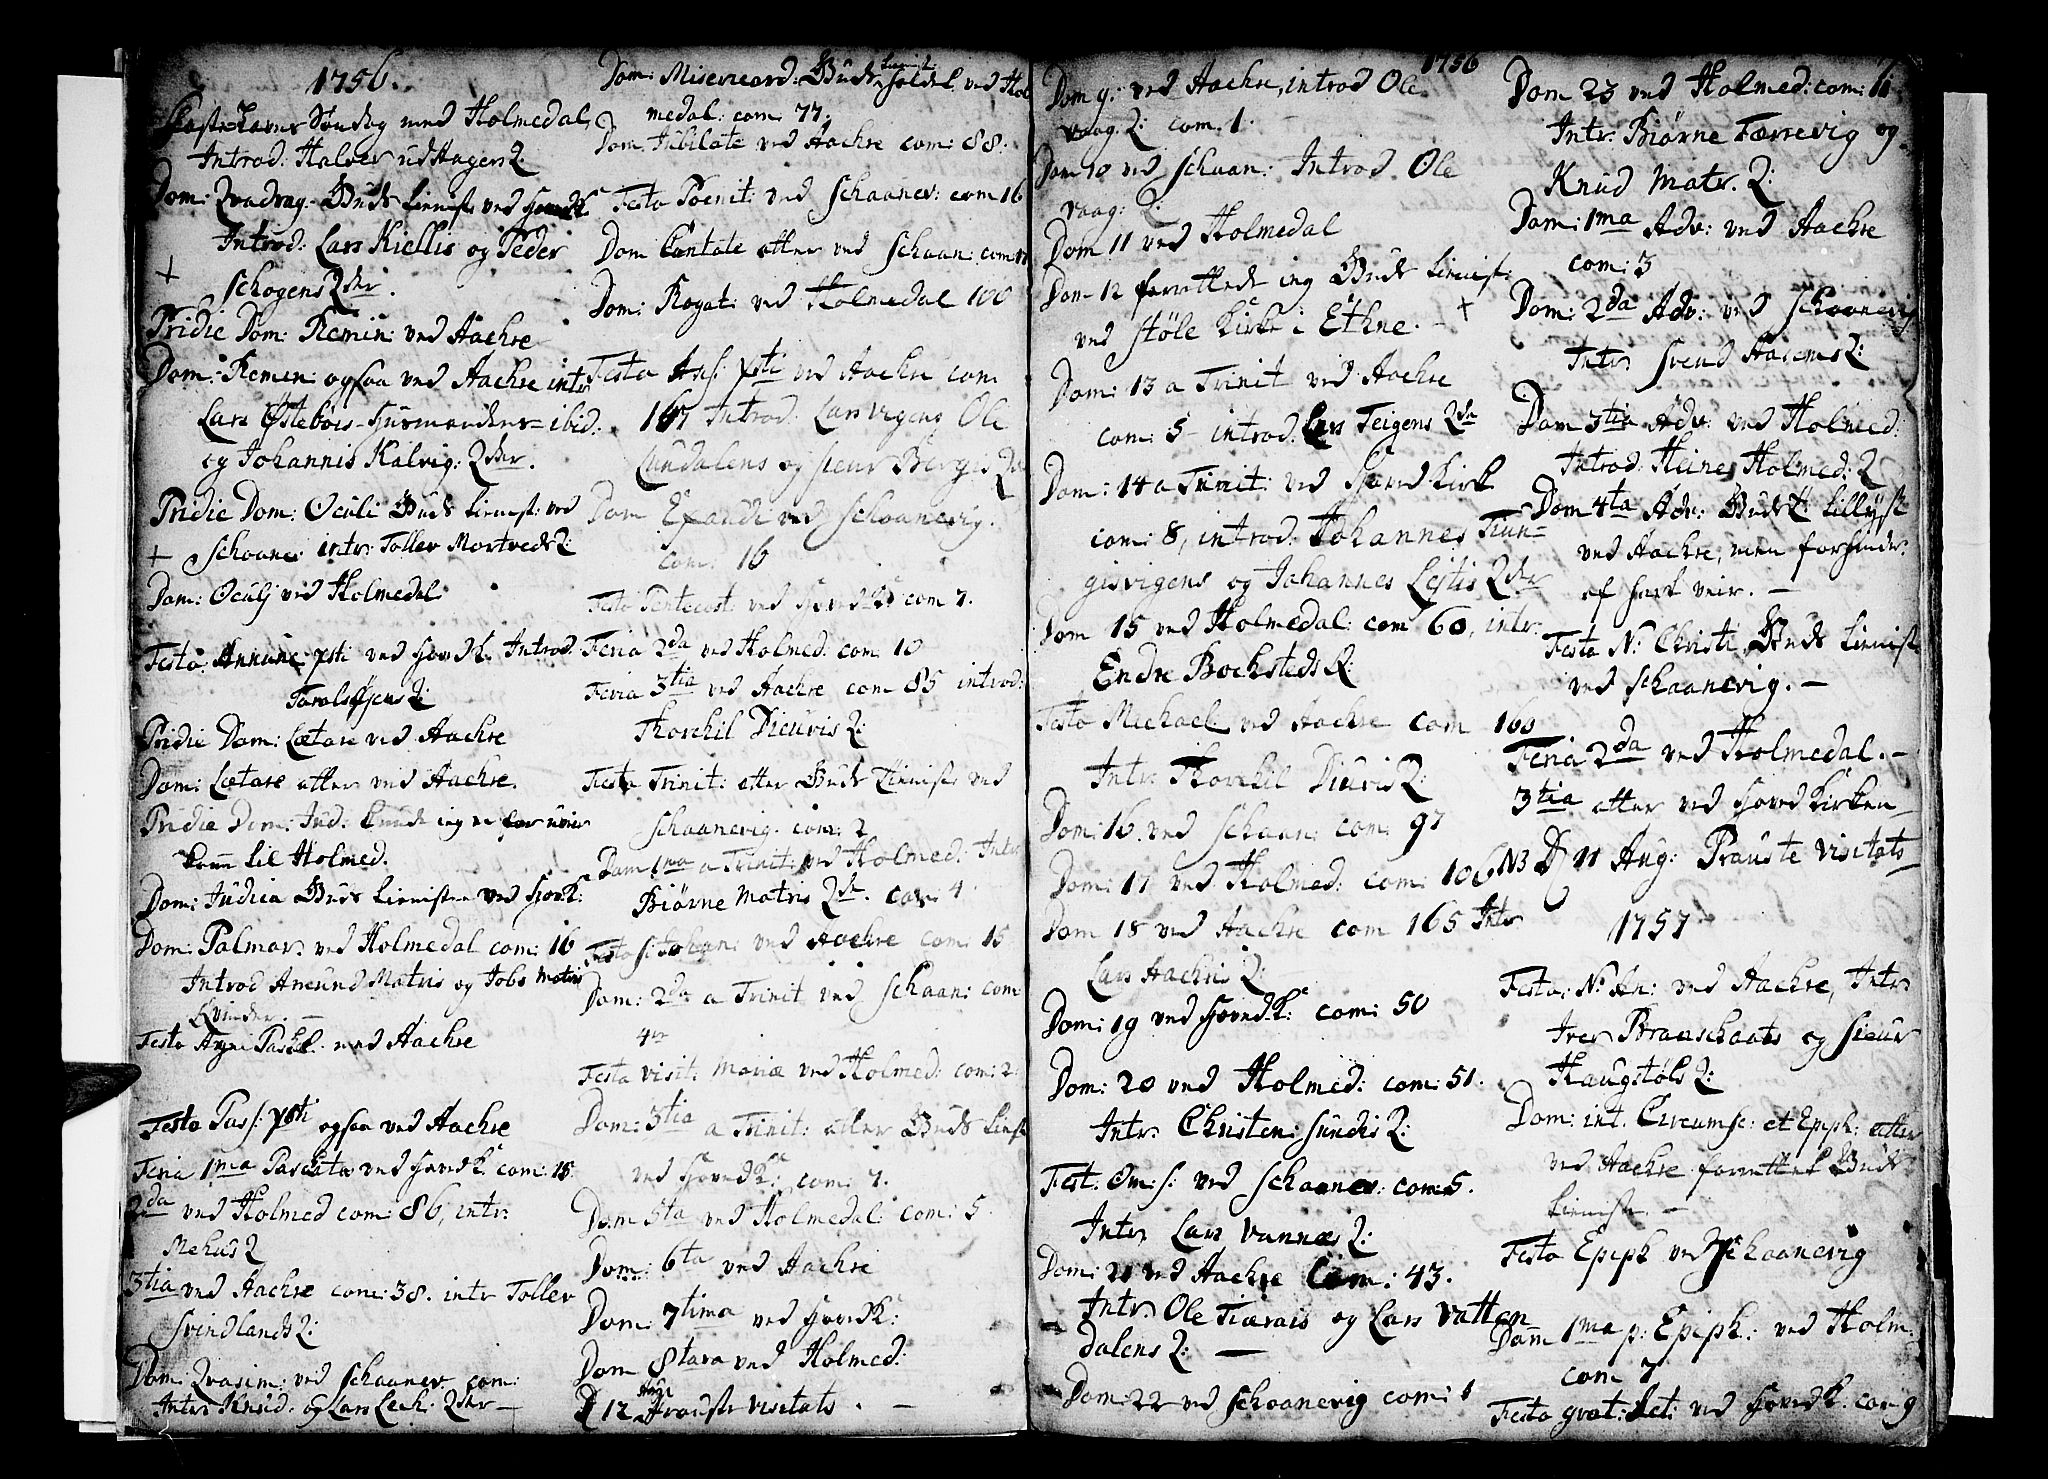 1756.
Faste Lavns Søndag ved Holmedal,
Introd: Halvor udHagens Q:
Dom: Qvadrag. Guds tienist ved Hovedk:
Introd: Lars Kiellis og Peder
+ Schogens Qdr.
Pridie Dom: Remin: ved Aachre
Dom: Remin: ogsaa ved Aachre intr
Lars Østebøis Huusmandens ibid:
og Johannis Kalvig: Qder.
Pridie Dom: Oculi Guds tienist: ved
+ Schaane: intr: Tollev Mortveds Q:
Dom: Oculj ved Holmedal
Festo: Annunc: xsti ved Hovedk: Introd
Pridie Dom: Lætare ved Aachre
Dom: Lætare atter ved Aachre.
Pridie Dom: Jud: kunde ieg for uveir
kom til Holmed.
Dom: Judica Guds tienisten ved Hovk:
Dom: Palmar: ved Holmedal com: 16
Introd Amund Matris og Jobs Matris
Qvinder. —
Festo Agni Paschal: ved Aachre
Festo Pass: xsti ogsaa ved Aachre
Feria 1ma Paschatos ved Hovedk: com: 15
2da ved Holmed com: 86, intr:
Mehus Q
3tia ved Aachre com: 38. intr Tollev
Svindlands Q:
Dom: Qvasim: ved Schaanev: com:
Intr: Knud: og Lars Lech: Qder —
Dom: Misericord: Guds tieni: holdet ved Hol
medal: com: 77.
Dom Jubilate ved Aachre com: 88.
Festo Poenit: ved Schaanev: com 16
Dom Cantate atter ved Schaan: com
Dom: Rogat: ved Holmedal 100
Festo Ass: xsti ved Aachre com
167 Introd: Lars Vigens Ole
Lundalens og Siur Bergis Q
Dom Exaudi ved Schaanevig.
com: 16
Festo Pentecost: ved Hovedk: com 7.
Feria 2da ved Holmed: com: 10
Feria 3tia ved Aachre com 85 introd:
Thorchil Diuvis Q:
Festo Trinit: atter Guds Tieniste ved
Schaanevig. com: 2
Dom 1ma a Trinit: ved Holmed: Intr
Biørne Matris Qde. com: 4
Festo S: Johan: ved Aachre com: 15
Dom: 2da a Trinit ved Schaan: com
4
Festo visit: Mariæ ved Holmed: com: 2:
Dom: 3tia a Trinit: atter Guds tienst
ved Hovedk: com: 7.
Dom 5ta ved Holmedal: com: 5.
Dom: 6ta ved Aachre
Dom: 7tima ved Hovedk:
Dom 8tava ved Holmed:
D 12 Aug: Prouste visitats. —
1756
Dom 9: ved Aachre, introd Ole
vaag. Q: com. 1.
Dom 10 ved Schaan: Introd. Ole
vaag: Q:
Dom 11 ved Holmedal
Dom 12 forrettede ieg Guds tienist:
ved Støle Kirke i Ethne. — +
Dom: 13 a Trinit ved Aachre
com: 5 introd: Lars Teigens Qde
Dom: 14 a Trinit: ved Hoved Kirk
com: 8, introd: Johannes Tiun=
gisvigens og Johannes Leitis Qder
Dom 15 ved Holmedal: com 60, intr:
Endre Bochsteds Q:
Festo Michael: ved Aachre com 160
Intr: Thorchil Diuvis Q:
Dom: 16. ved Schaan: com: 97
Dom: 17 ved Holmed: com: 106
Dom 18 ved Aachre com 165 Intr
Lars Aachris Q:
Dom: 19 ved Hovedk: com: 50
Dom: 20 ved Holmed: com: 51.
Intr: Christen: Sundis Q:
Fest. Om: S: ved Schaanev: com: 5.
Intr Lars Vannæs Q:
Dom: 21 ved Aachre Com: 43.
Intr: Ole Tiærais og Lars Vatten
dalens Q: —
Dom: 22 ved Schaanevig com: 1
7.
Dom 23 ved Holmed: com: 11
Intr: Biørne Tærrevig og
Knud Matr. Q:
Dom: 1ma Adv: ved Aachre
com: 3
Dom: 2da Adv: ved Schaanevig
Intr Svend Aasems Q:
Dom 3tia Adv: ved Holmed:
Introd: Heine Holmed: Q
Dom 4ta Adv: Guds t: tillyst
ved Aachre, men forhinder:
af hart veir. —
Festo N: Christi Guds tienist
ved Schaanevig. —
Feria 2da ved Holmedal. —
3tia atter ved Hovedkirken —
NB D 11 Aug: Prouste visitats
1757
Festo: N: An: ved Aachre, Intr
Iver Braaschaats og Siur
Haugstøls Q:
Dom: int. Circumsc: et Epiph: atter
ved Aachre forrettet Guds
tieniste. —
Festo Epiph ved Schaanevig
Dom 1ma p: Epiph: ved Holm:
com 7
Festo grat: act: ved Hovedk: com 9